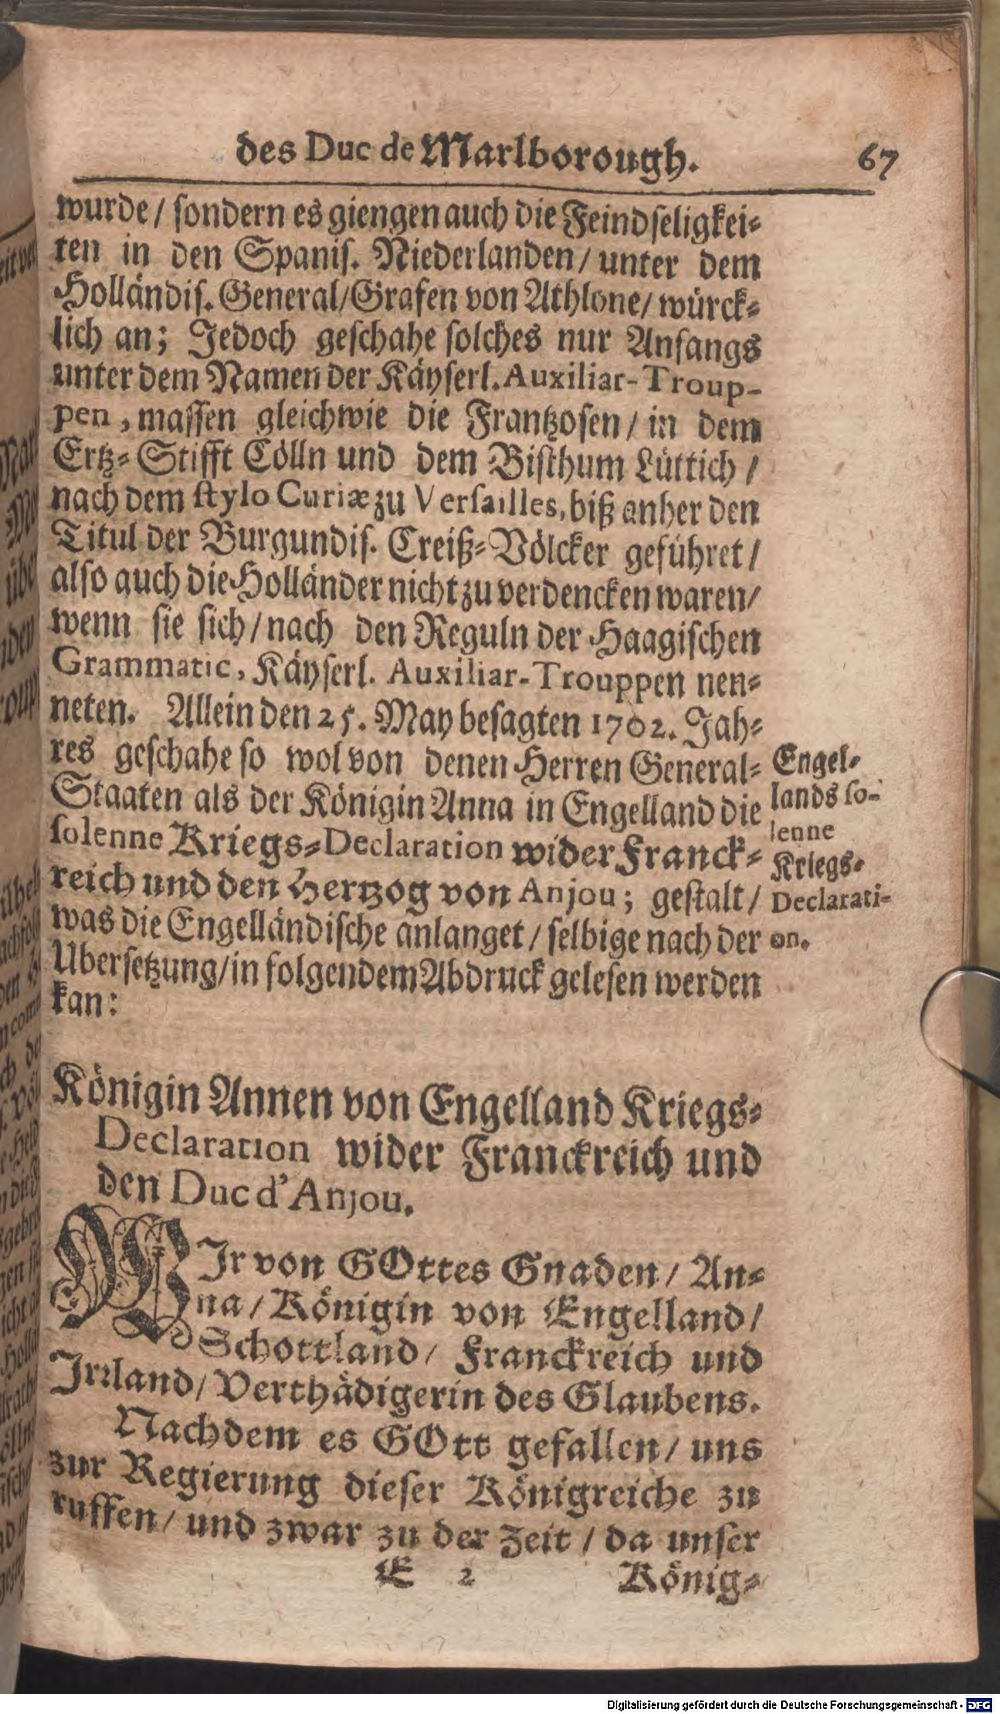 des Duc de Marlborough. 67
wurde / sondern es giengen auch die Feindseligkei=
ten in den Spanis. Niederlanden / unter dem
Holländis. General / Grafen von Athlone / würck=
lich an; Jedoch geschahe solches nur Anfangs
unter dem Namen der Käyserl. Auxiliar-Troup-
pen, massen gleichwie die Frantzosen / in dem
Ertz=Stifft Cölln und dem Bisthum Lüttich /
nach dem stylo Curiæ zu Versailles, biß anher den
Titul der Burgundis. Creiß=Völcker geführet /
also auch die Holländer nicht zu verdencken waren /
wenn sie sich / nach den Reguln der Haagischen
Grammatic, Käyserl. Auxiliar-Trouppen nen=
neten. Allein den 25. May besagten 1702. Jah=
res geschahe so wol von denen Herren General=
Staaten als der Königin Anna in Engelland die
solenne Kriegs=Declaration wider Franck=
reich und den Hertzog von Anjou; gestalt /
was die Engelländische anlanget / selbige nach der
Ubersetzung / in folgendem Abdruck gelesen werden
kan:
Engel=
lands so-
lenne
Kriegs=
Declarati-
on.
Königin Annen von Engelland Kriegs=
Declaration wider Franckreich und
den Duc d'Anjou.
WIr von GOttes Gnaden / An=
na / Königin von Engelland /
Schottland / Franckreich und
Irrland / Verthädigerin des Glaubens.
Nachdem es GOtt gefallen / uns
zur Regierung dieser Königreiche zu
ruffen / und zwar zu der Zeit / da unser
E 2 König=
Digitalisierung gefördert durch die Deutsche Forschungsgemeinschaft - DFG